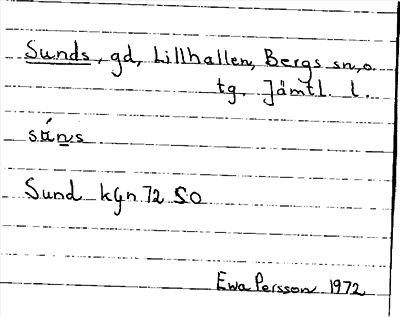 Sunds, gd, Lillhallen, Bergs sn, o.
tg. Jämtl. l.
sɑ́ns
Sund kgn 72 SO
Ewa Persson 1972